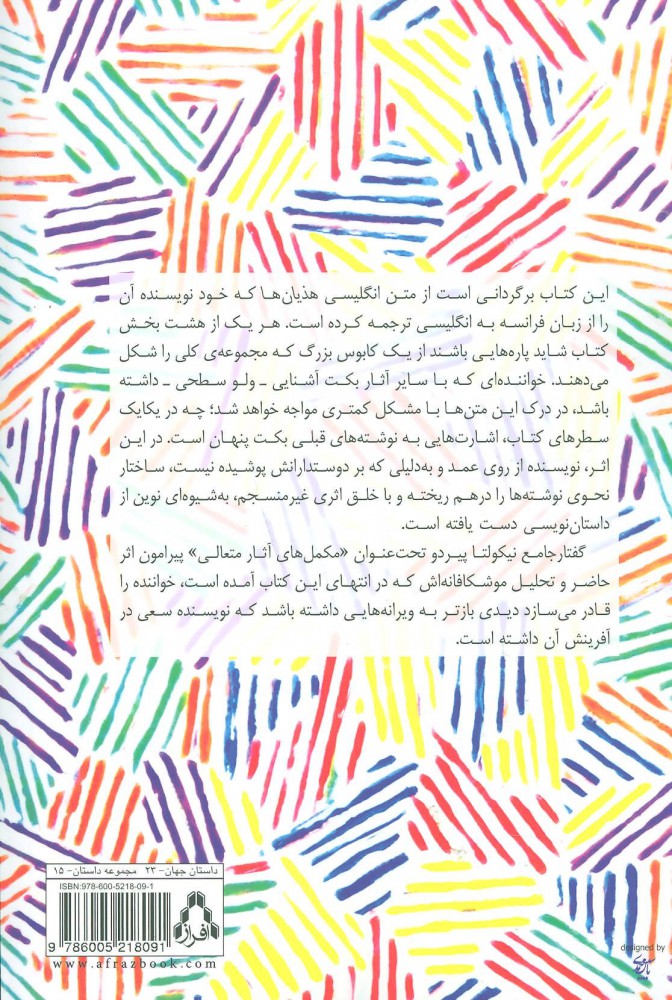 این کتاب برگردانی است از متن انگلیسی هذیان‌ها که خود نویسنده آن
را از زبان فرانسه به انگلیسی ترجمه کرده است. هر یک از هشت بخش
کتاب شاید پاره‌هایی باشند از یک کابوس بزرگ که مجموعه‌ی کلی را شکل
می‌دهند. خواننده‌ای که با سایر آثار بکت آشنایی ـ ولو سطحی ـ داشته
باشد، در درک این متن‌ها با مشکل کمتری مواجه خواهد شد؛ چه در یکایک
سطرهای کتاب، اشارت‌هایی به نوشته‌های قبلی بکت پنهان است. در این
اثر، نویسنده از روی عمد و به‌دلیلی که بر دوستدارانش پوشیده نیست، ساختار
نحوی نوشته‌ها را درهم ریخته و با خلق اثری غیرمنسجم، به‌شیوه‌ای نوین از
داستان‌نویسی دست یافته است.
گفتارجامع نیکولتا پیردو تحت‌عنوان «مکمل‌های آثار متعالی» پیرامون اثر
حاضر و تحلیل موشکافانه‌اش که در انتهای این کتاب آمده است، خواننده را
قادر می‌سازد دیدی بازتر به ویرانه‌هایی داشته باشد که نویسنده سعی در
آفرینش آن داشته است.
داستان جهان- ۲۳ مجموعه داستان- ۱۵
ISBN:978-600-5218-09-1
9 786005 218091
افراز
www.afrazbook.com
designed by